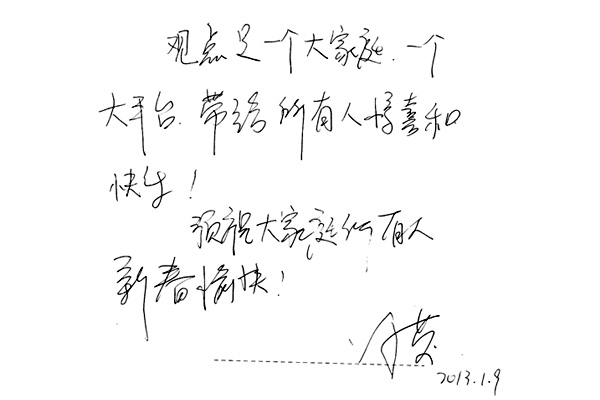 观点是一个大家庭.一个
大平台.带给所有人惊喜和
快乐!
预祝大家庭所有人
新春愉快!
2013.1.9